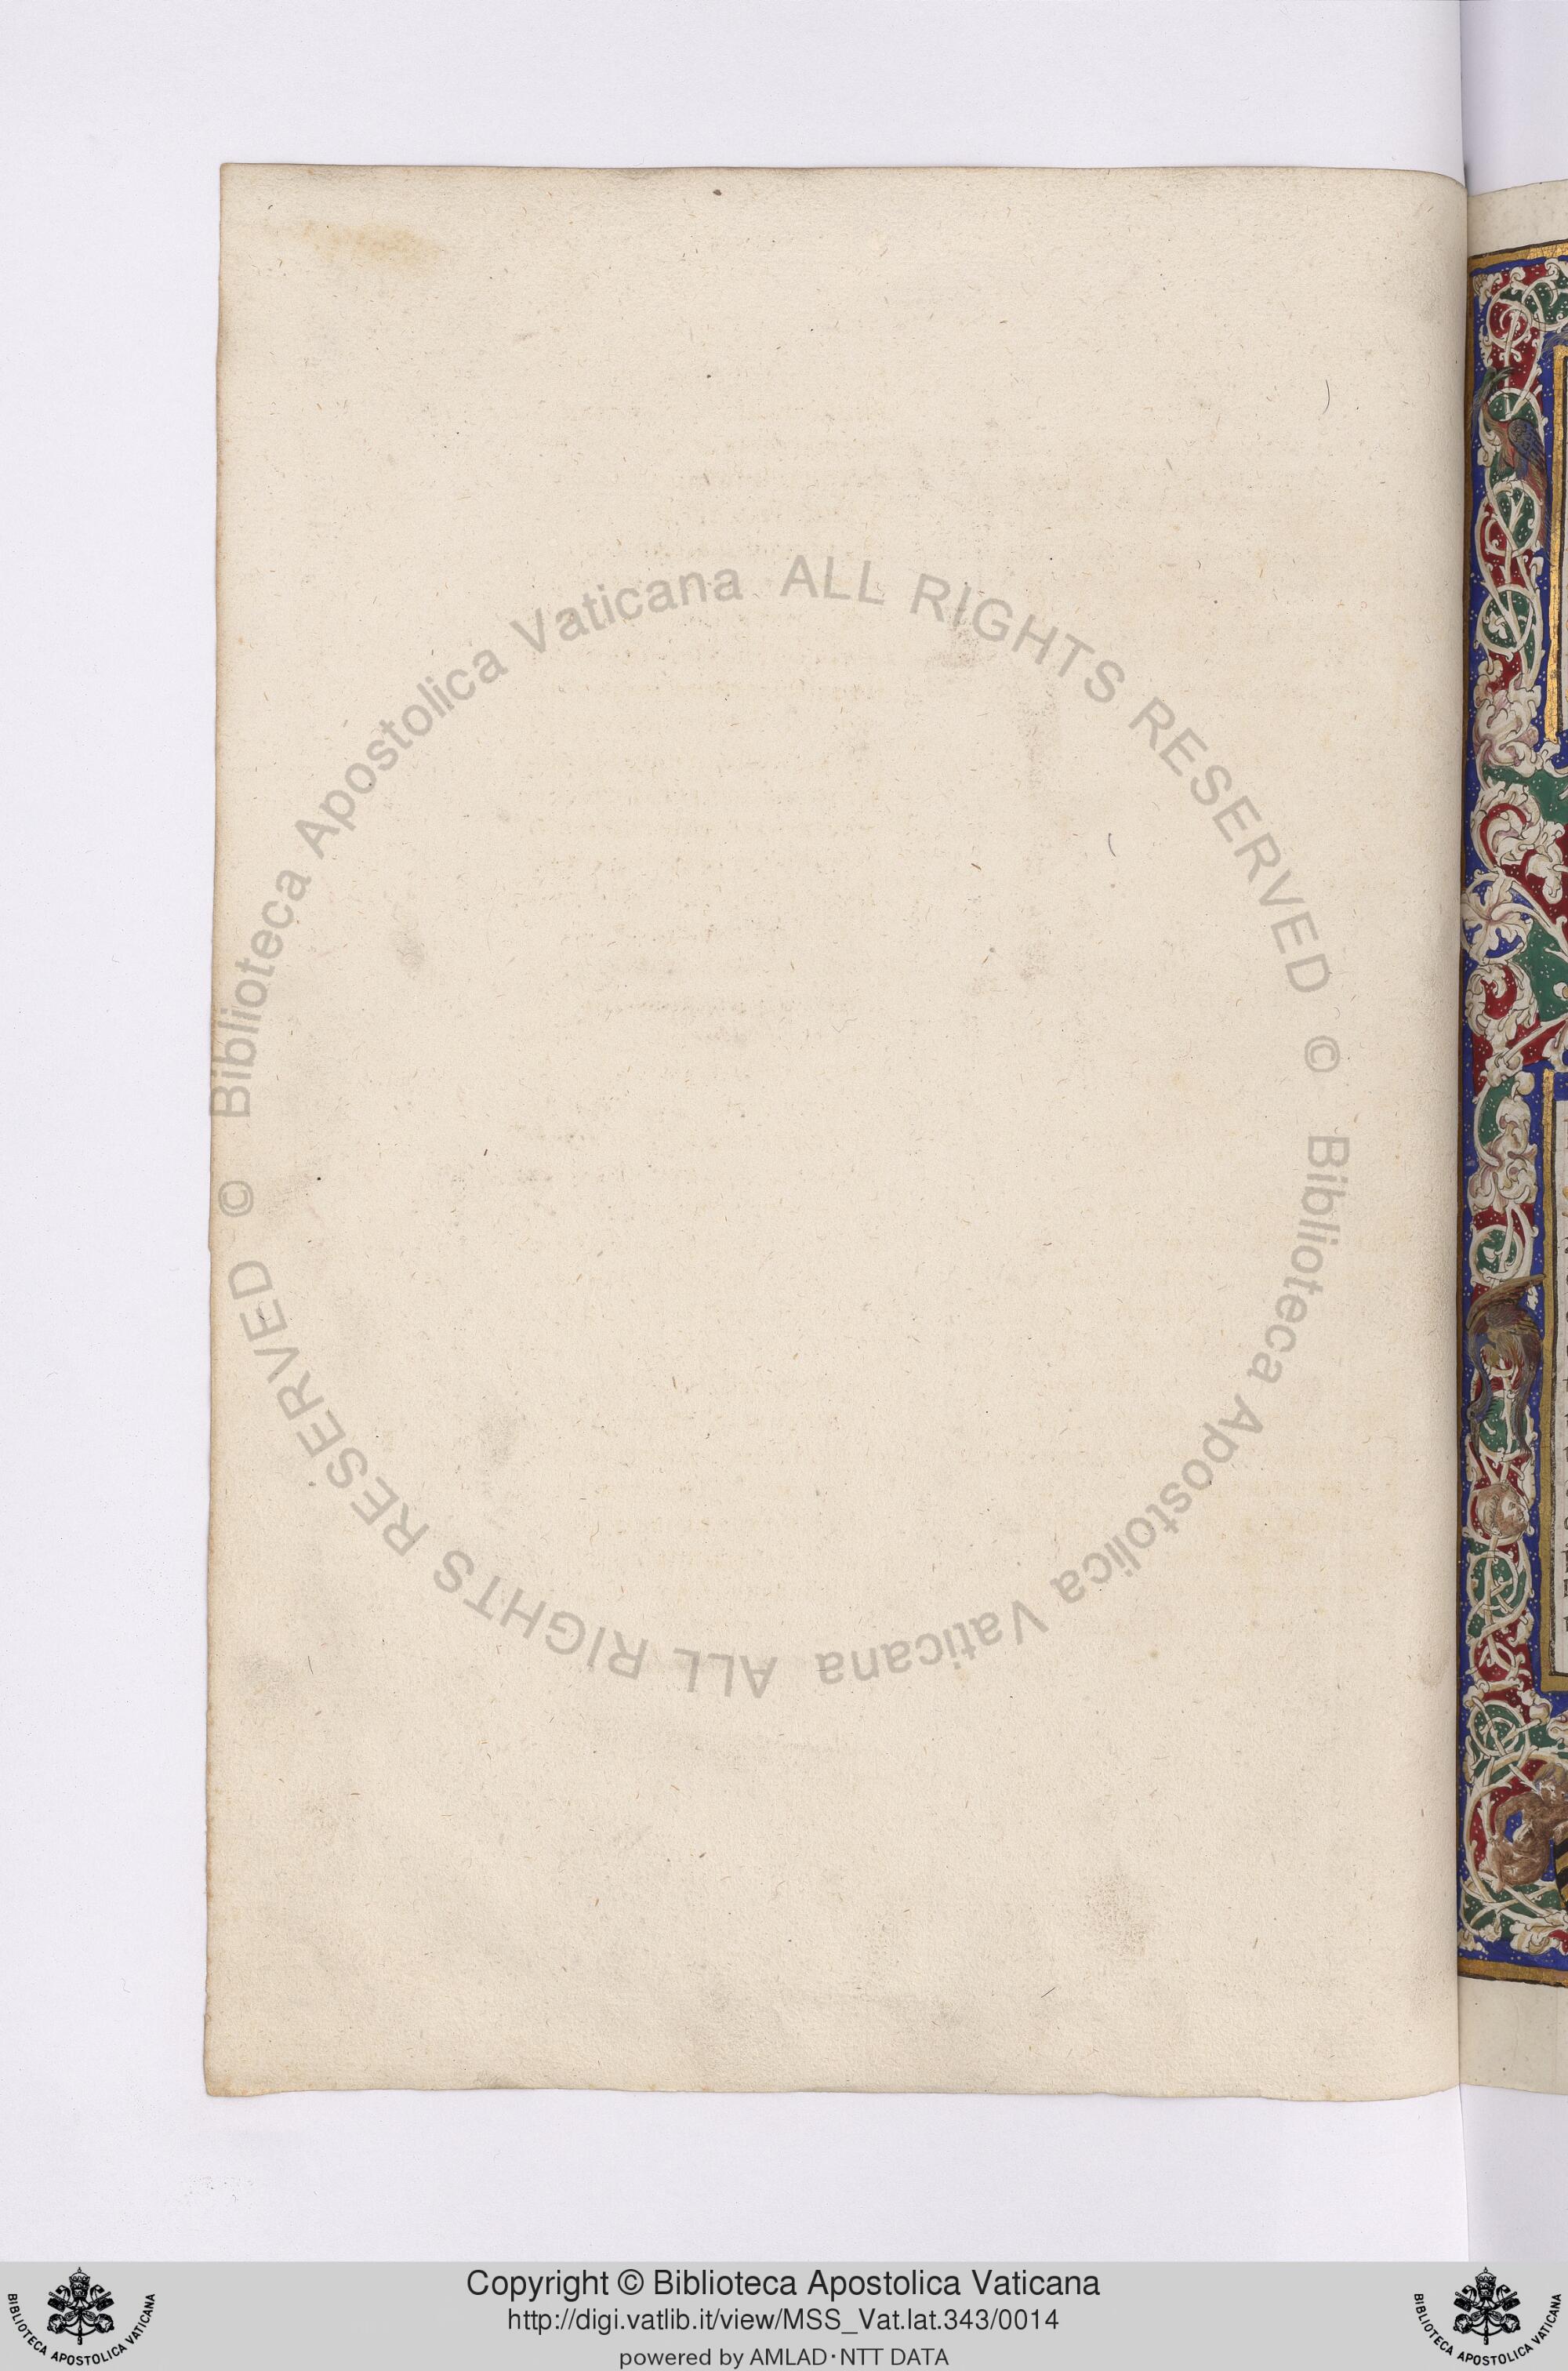 Biblioteca Apostolica Vaticana ALL RIGHTS RESERVED ©
Biblioteca Apostolica Vaticana ALL RIGHTS RESERVED ©
Copyright © Biblioteca Apostolica Vaticana
http://digi.vatlib.it/view/MSS_Vat.lat.343/0014
powered by AMLAD·NTT DATA
BIBLIOTECA APOSTOLICA VATICANA
BIBLIOTECA APOSTOLICA VATICANA